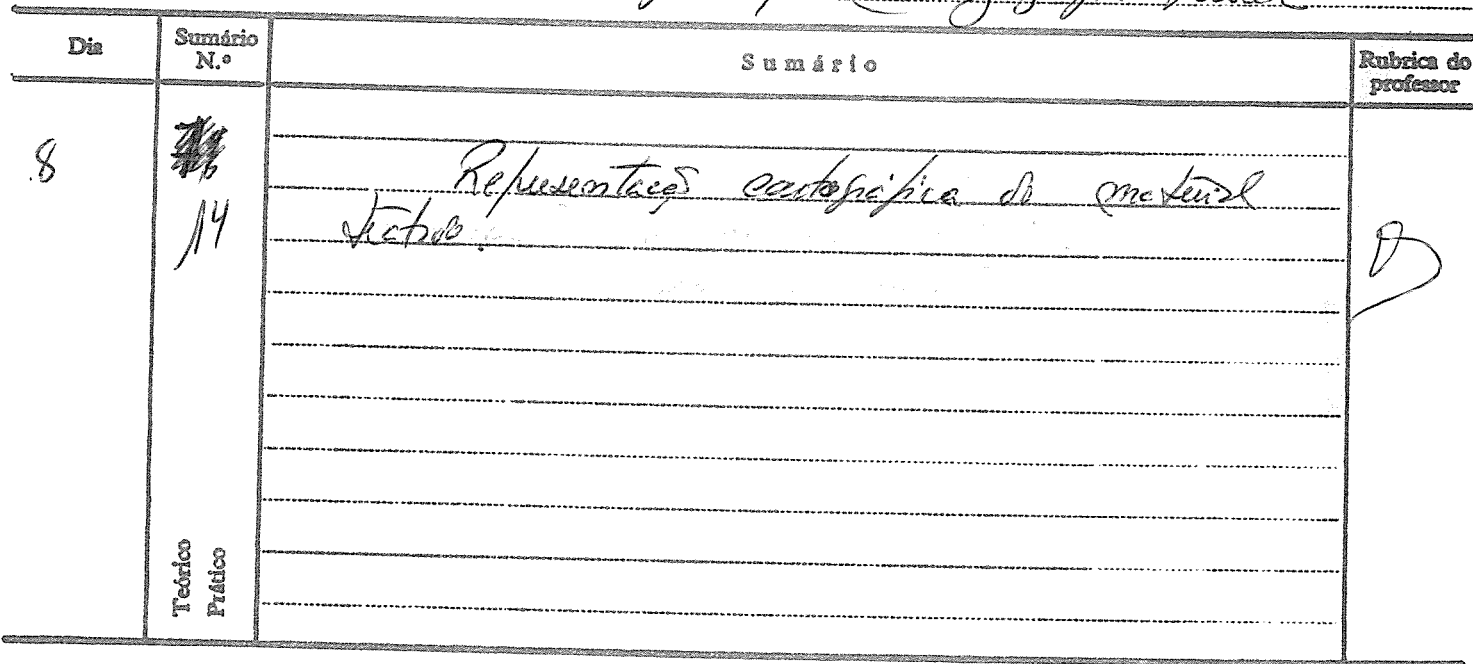 Dia
Sumário N.º
Sumário
Rubrica do professor
8
14
Representaçã cartográfica do material
Teórico
Prático